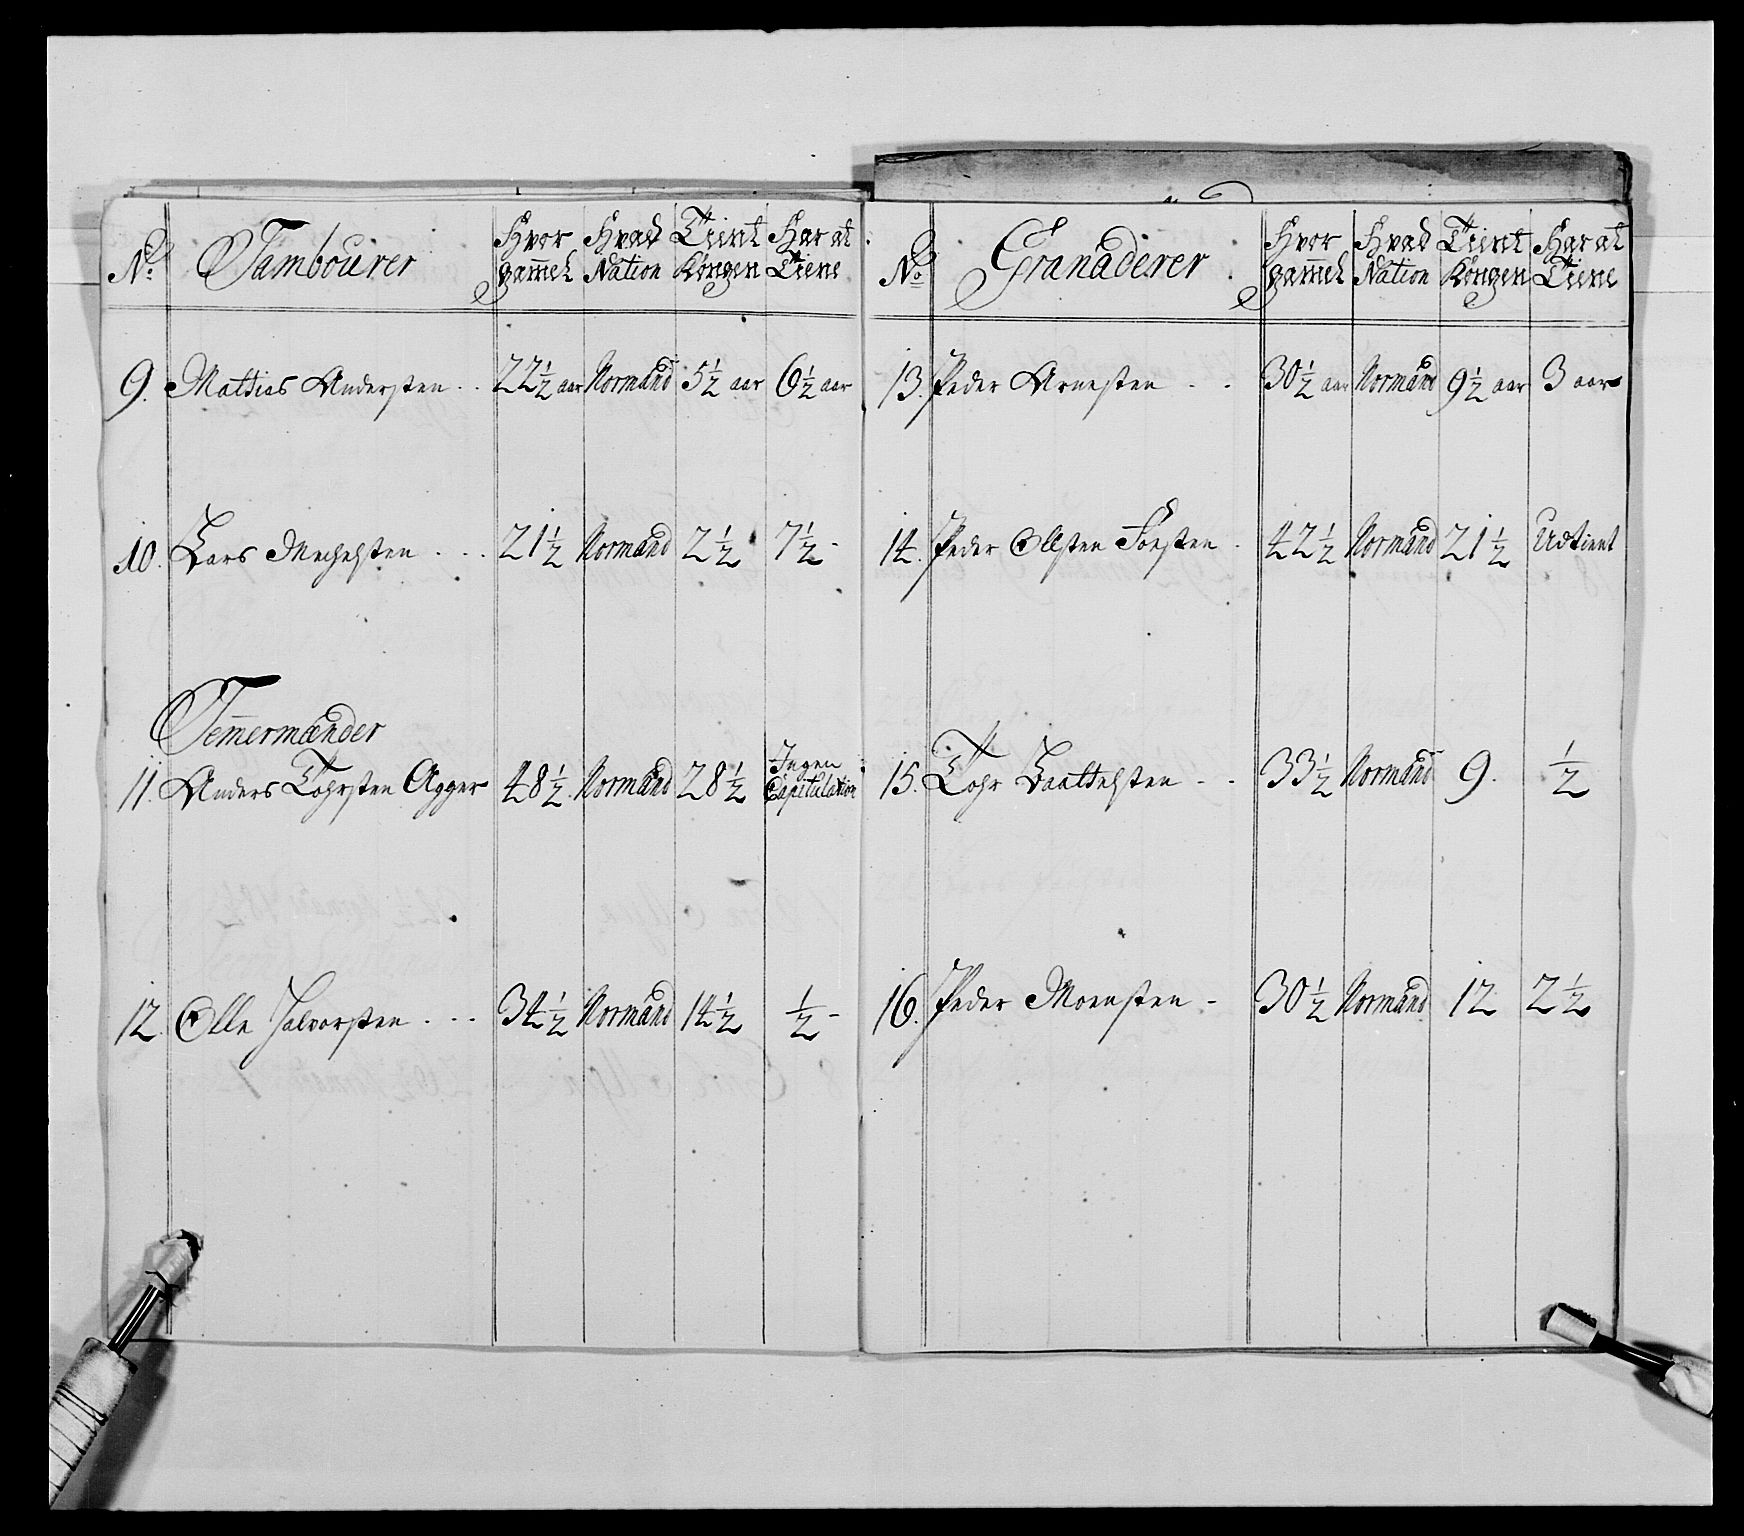 No Tambourer Hvor gammel Hvad Nation Tient Kongen Har at Tiene
9. Mathias Andersten . . 22½ aar Normand 5½ aar 6½ aar
10. Lars Mechelsten . . . 21½ Normand 2½ 7½ -
Temmermænder
11. Anders Tohrsten Agger 48½ Normand 28½ Ingen Capitulation
12 Olle Halvorsten . . . 34½ Normand 14½ ½ -
No Granaderer . Hvor gammel Hvad Nation Tient Kongen Har at Tiene
13. Peder Arnesten - - 30½ aar Normand 9½ aar 3 aar
14. Peder Ollsten - 42½ Normand 21½ Udtient
15. Tohr - - 33½ Normand 9. ½
16. Peder Monsten - 30½ Normand 12 2½